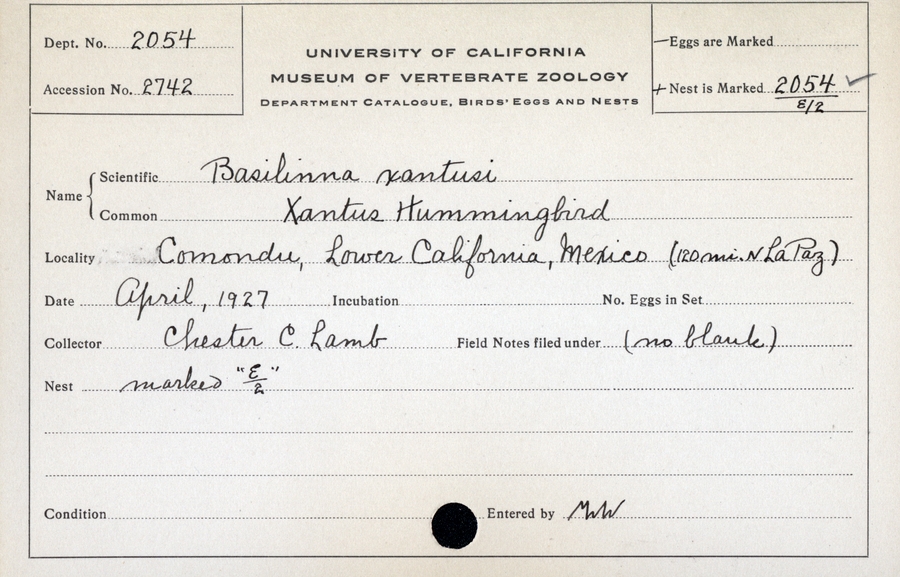 Dept. No. 2054
Accession No. 2742
UNIVERSITY OF CALIFORNIA
MUSEUM OF VERTEBRATE ZOOLOGY
DEPARTMENT CATALOGUE, BIRDS' EGGS AND NESTS
—Eggs are Marked
+ Nest is Marked 2054 ✓
E/2
Name { Scientific Basilinna xantusi
Common Xantus Hummingbird
Locality Comondu, Lower California, Mexico (120 mi. N La Paz)
Date April, 1927 Incubation No. Eggs in Set
Collector Chester C. Lamb Field Notes filed under (no blank)
Nest marked "E/2"
Condition Entered by MW